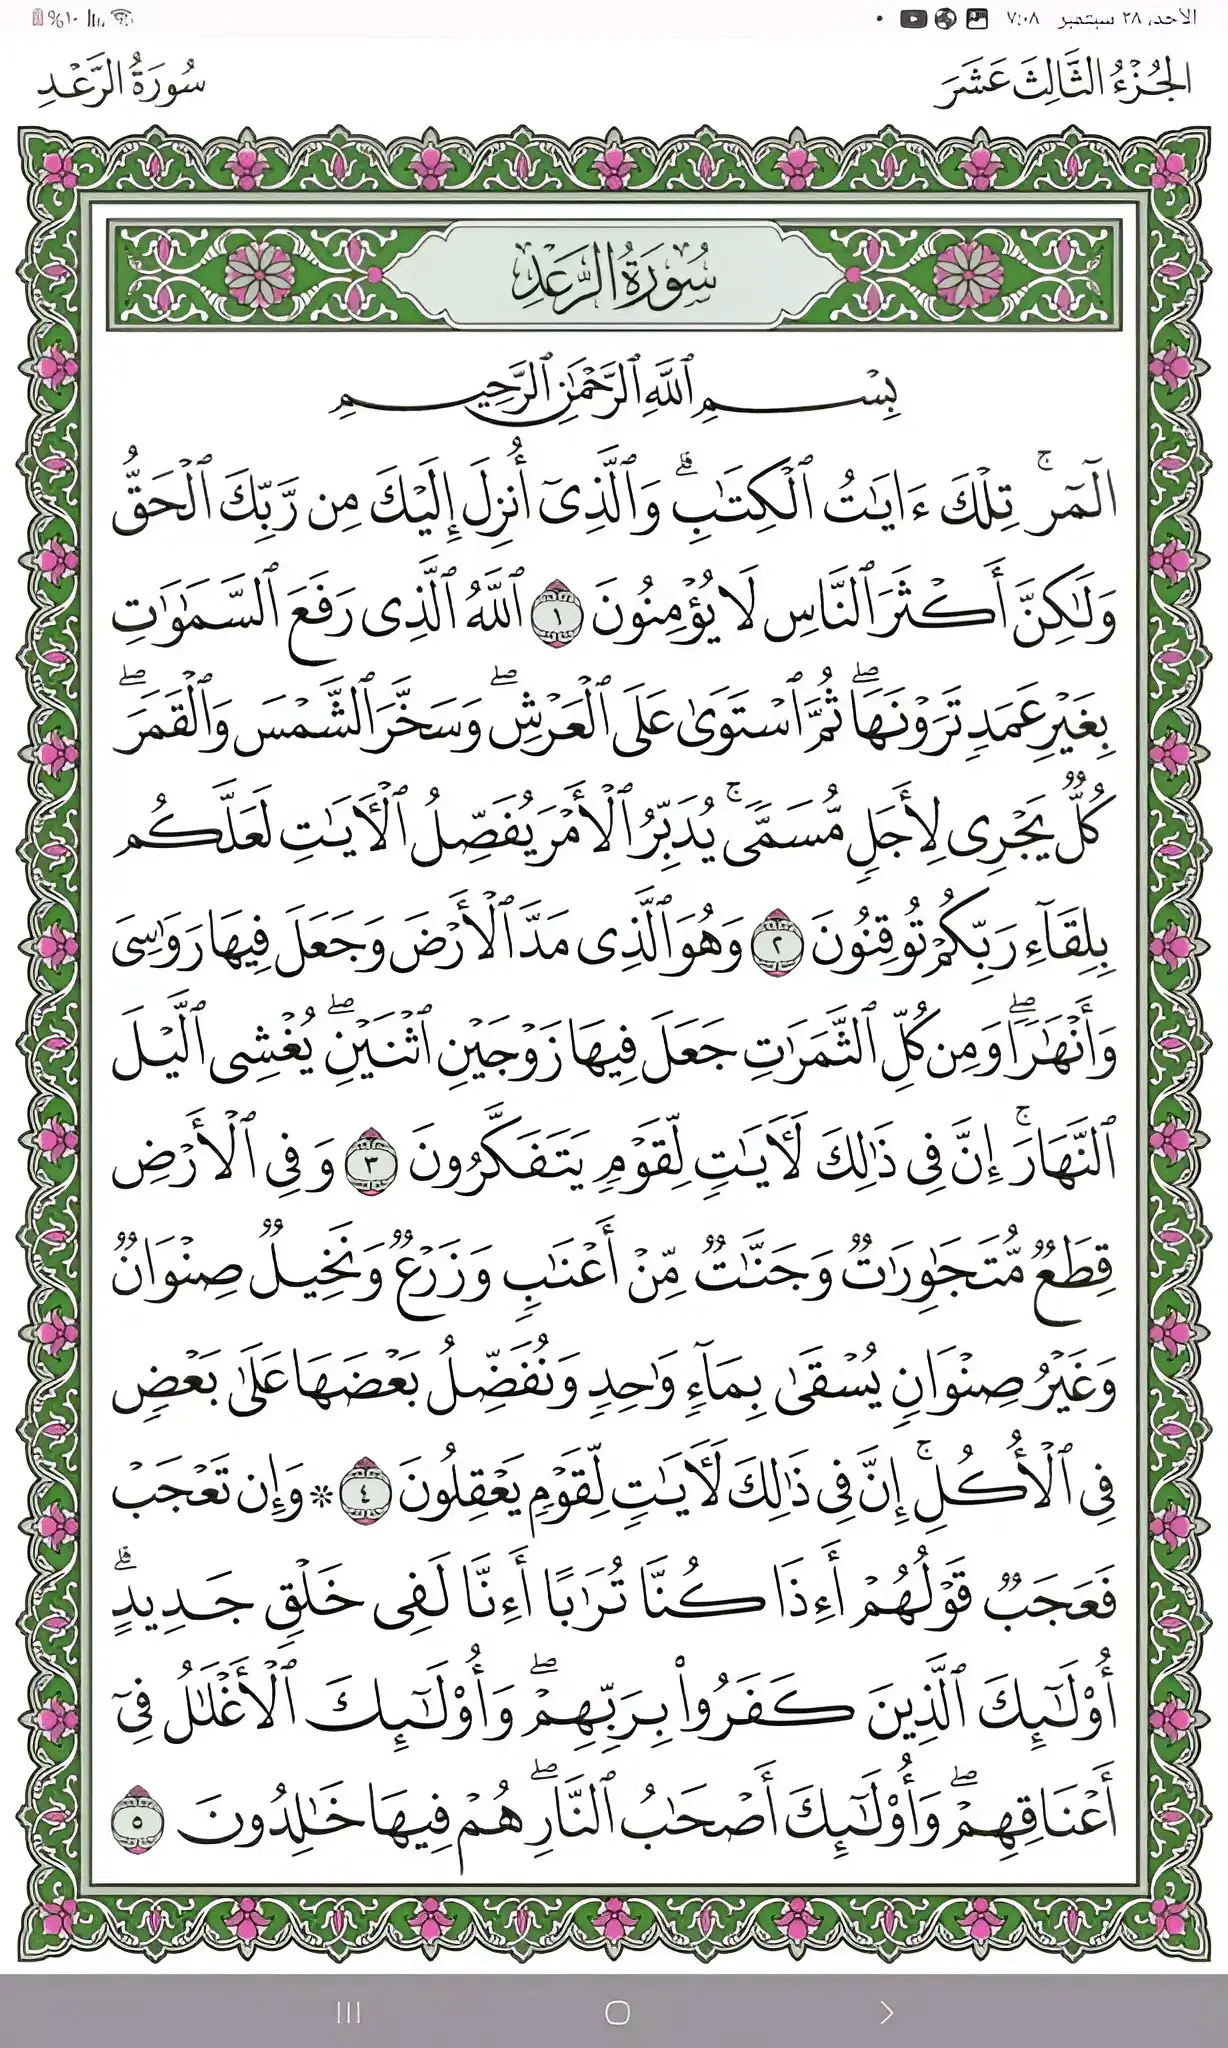 الأحد، ٢٨ سبتمبر ٧:٠٨
%١٠
الجُزْءُ الثَّالِثَ عَشَرَ
سُورَةُ الرَّعْدِ
سُورَةُ الرَّعْدِ
بِسْمِ ٱللَّهِ ٱلرَّحْمَٰنِ ٱلرَّحِيمِ
الٓمٓرۚ تِلْكَ ءَايَٰتُ ٱلْكِتَٰبِۗ وَٱلَّذِىٓ أُنزِلَ إِلَيْكَ مِن رَّبِّكَ ٱلْحَقُّ
وَلَٰكِنَّ أَكْثَرَ ٱلنَّاسِ لَا يُؤْمِنُونَ ١ ٱللَّهُ ٱلَّذِى رَفَعَ ٱلسَّمَٰوَٰتِ
بِغَيْرِ عَمَدٍ تَرَوْنَهَاۖ ثُمَّ ٱسْتَوَىٰ عَلَى ٱلْعَرْشِۖ وَسَخَّرَ ٱلشَّمْسَ وَٱلْقَمَرَۖ
كُلٌّ يَجْرِى لِأَجَلٍ مُّسَمًّىۚ يُدَبِّرُ ٱلْأَمْرَ يُفَصِّلُ ٱلْأَيَٰتِ لَعَلَّكُم
بِلِقَآءِ رَبِّكُمْ تُوقِنُونَ ٢ وَهُوَ ٱلَّذِى مَدَّ ٱلْأَرْضَ وَجَعَلَ فِيهَا رَوَٰسِىَ
وَأَنْهَٰرًاۖ وَمِن كُلِّ ٱلثَّمَرَٰتِ جَعَلَ فِيهَا زَوْجَيْنِ ٱثْنَيْنِۖ يُغْشِى ٱلَّيْلَ
ٱلنَّهَارَۚ إِنَّ فِى ذَٰلِكَ لَأَيَٰتٍ لِّقَوْمٍ يَتَفَكَّرُونَ ٣ وَفِى ٱلْأَرْضِ
قِطَعٌ مُّتَجَٰوِرَٰتٌ وَجَنَّٰتٌ مِّنْ أَعْنَٰبٍ وَزَرْعٌ وَنَخِيلٌ صِنْوَانٌ
وَغَيْرُ صِنْوَانٍ يُسْقَىٰ بِمَآءٍ وَٰحِدٍ وَنُفَضِّلُ بَعْضَهَا عَلَىٰ بَعْضٍ
فِى ٱلْأُكُلِۚ إِنَّ فِى ذَٰلِكَ لَأَيَٰتٍ لِّقَوْمٍ يَعْقِلُونَ ٤ * وَإِن تَعْجَبْ
فَعَجَبٌ قَوْلُهُمْ أَءِذَا كُنَّا تُرَٰبًا أَءِنَّا لَفِى خَلْقٍ جَدِيدٍۗ
أُو۟لَٰٓئِكَ ٱلَّذِينَ كَفَرُوا۟ بِرَبِّهِمْۖ وَأُو۟لَٰٓئِكَ ٱلْأَغْلَٰلُ فِىٓ
أَعْنَاقِهِمْۖ وَأُو۟لَٰٓئِكَ أَصْحَٰبُ ٱلنَّارِۖ هُمْ فِيهَا خَٰلِدُونَ ٥